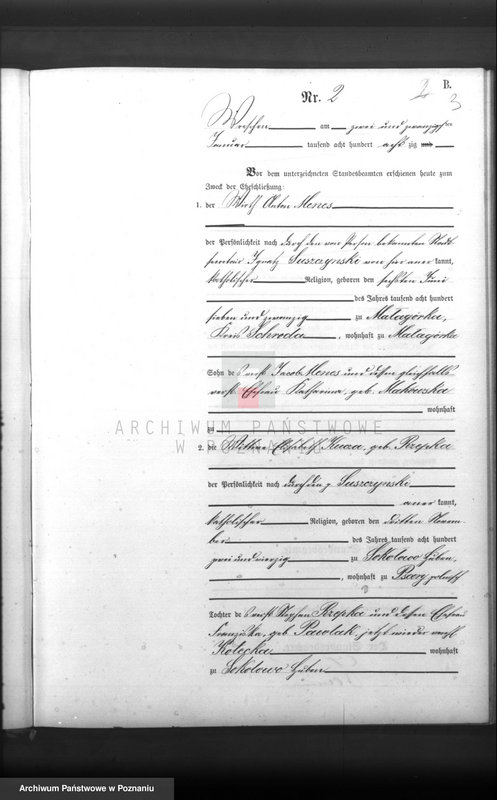 B.
Nr. 2
3
Wreschen am zwei und zwanzigsten
Januar tausend acht hundert acht zig und
Vor dem unterzeichneten Standesbeamten erschienen heute zum
Zweck der Eheschließung:
1. der Wirth Anton Menes
der Persönlichkeit nach durch den von Person bekannten Stadt
secretair Ignatz Suszczynski von hier aner kannt,
katholischer Religion, geboren den sechsten Juni
des Jahres tausend acht hundert
sieben und zwanzig zu Malagórka,
Kreis Schroda, wohnhaft zu Malagórka
Sohn des verst. Jacob Menes und dessen gleichfalls
verst. Ehefrau Katharina, geb. Makowska
wohnhaft
zu
ARCHIWUM PAŃSTWOWE
W POZNANIU
2. die Wittwe Elisabeth Kucza, geb. Rzepka
der Persönlichkeit nach durch den p. Suszczynski
aner kannt,
katholischer Religion, geboren den dritten Novem-
ber des Jahres tausend acht hundert
zwei und vierzig zu Sokolowo Huben,
wohnhaft zu Psary polnisch
Tochter des verst. Stephan Rzepka und dessen Ehefrau
Franziska, geb. Pawlak, jetzt wieder verehl.
Kolecka wohnhaft
zu Sokolowo Huben
Archiwum Państwowe w Poznaniu